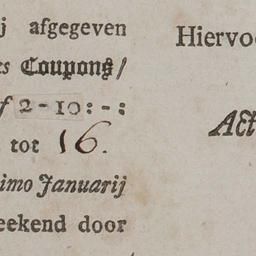 j afgegeven
es Coupons/
f 2-10:-:
tot 16.
imo Januarij
eekend door
Hiervo
Act